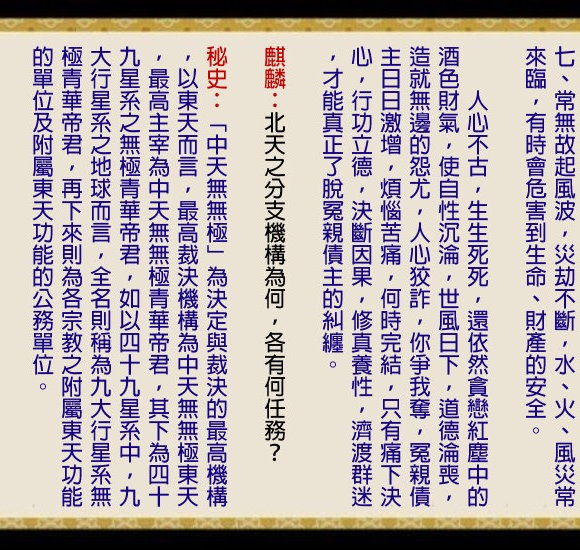 七、常無故起風波，災劫不斷，水、火、風災常
來臨，有時會危害到生命、財產的安全。
人心不古，生生死死，還依然貪戀紅塵中的
酒色財氣，使自性沉淪，世風日下，道德淪喪，
造就無邊的怨尤，人心狡詐，你爭我奪，冤親債
主日日激增，煩惱苦痛，何時完結，只有痛下決
心，行功立德，決斷因果，修真養性，濟渡群迷
，才能真正了脫冤親債主的糾纏。
麒麟：北天之分支機構為何，各有何任務？
秘史：「中天無無極」為決定與裁決的最高機構
，以東天而言，最高裁決機構為中天無無極東天
，最高主宰為中天無無極青華帝君，其下為四十
九星系之無極青華帝君，如以四十九星系中，九
大行星系之地球而言，全名則稱為九大行星系無
極青華帝君，再下來則為各宗教之附屬東天功能
的單位及附屬東天功能的公務單位。